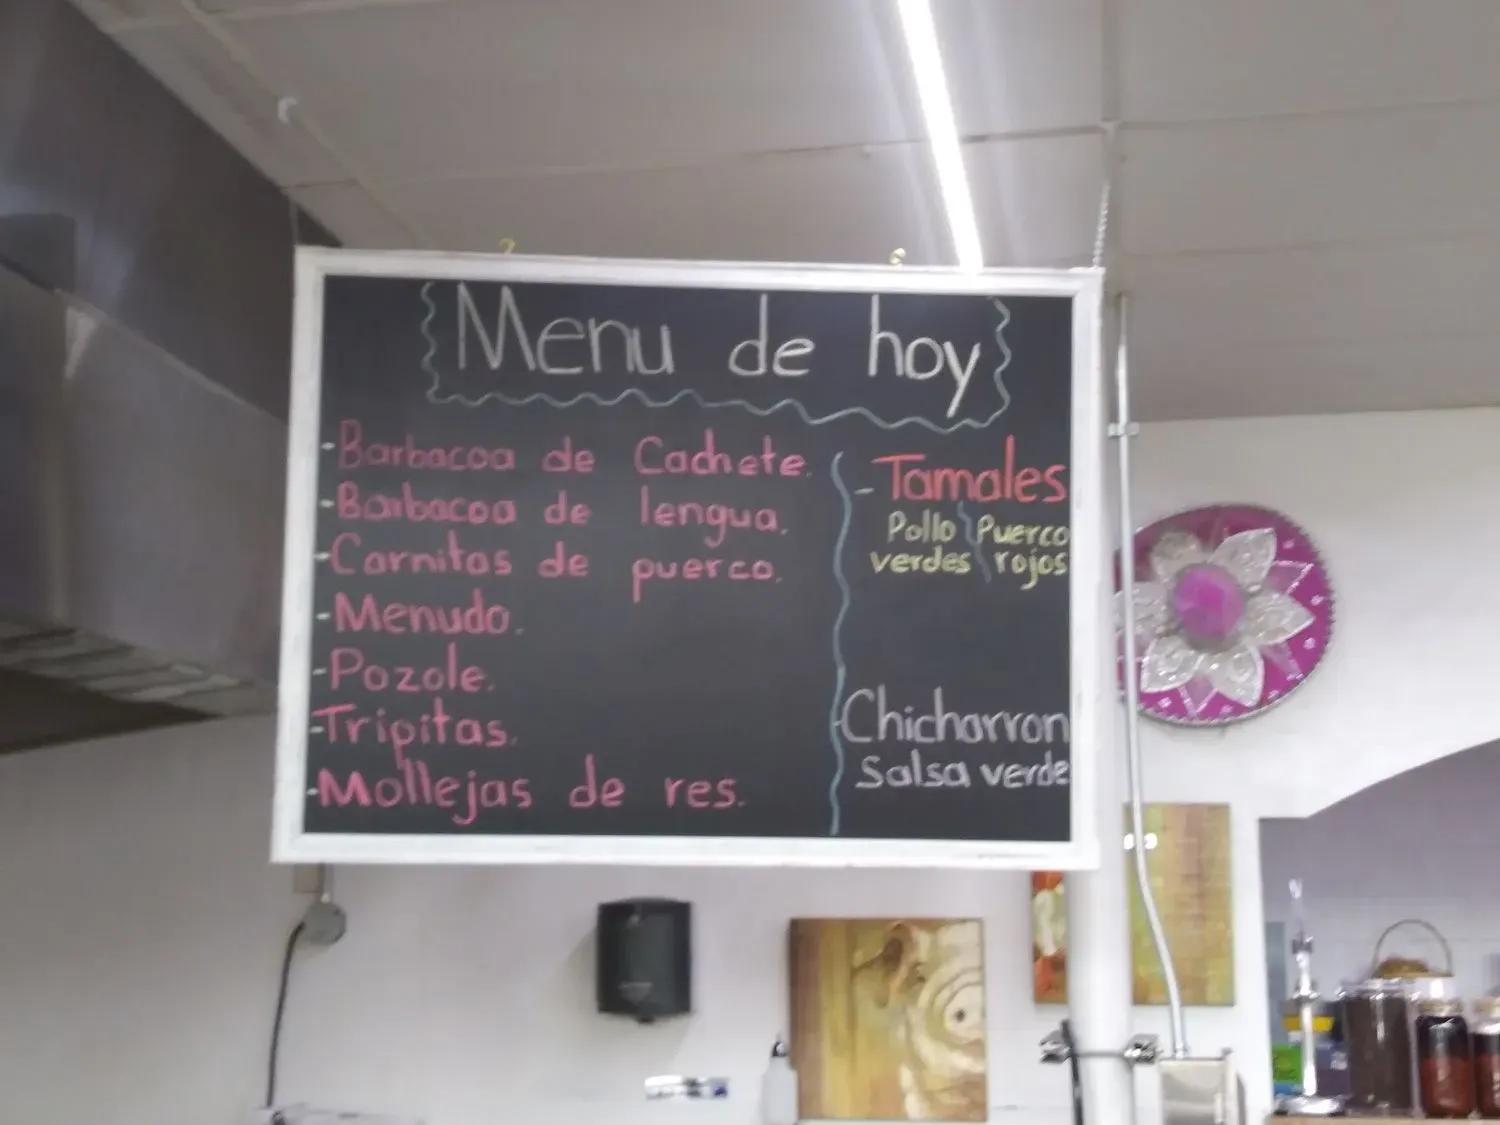 Menu de hoy
-Barbacoa de Cachete.
-Barbacoa de lengua.
-Carnitas de puerco.
-Menudo.
-Pozole.
-Tripitas.
-Mollejas de res.
-Tamales
Pollo Puerco
verdes rojos
-Chicharron
Salsa verde